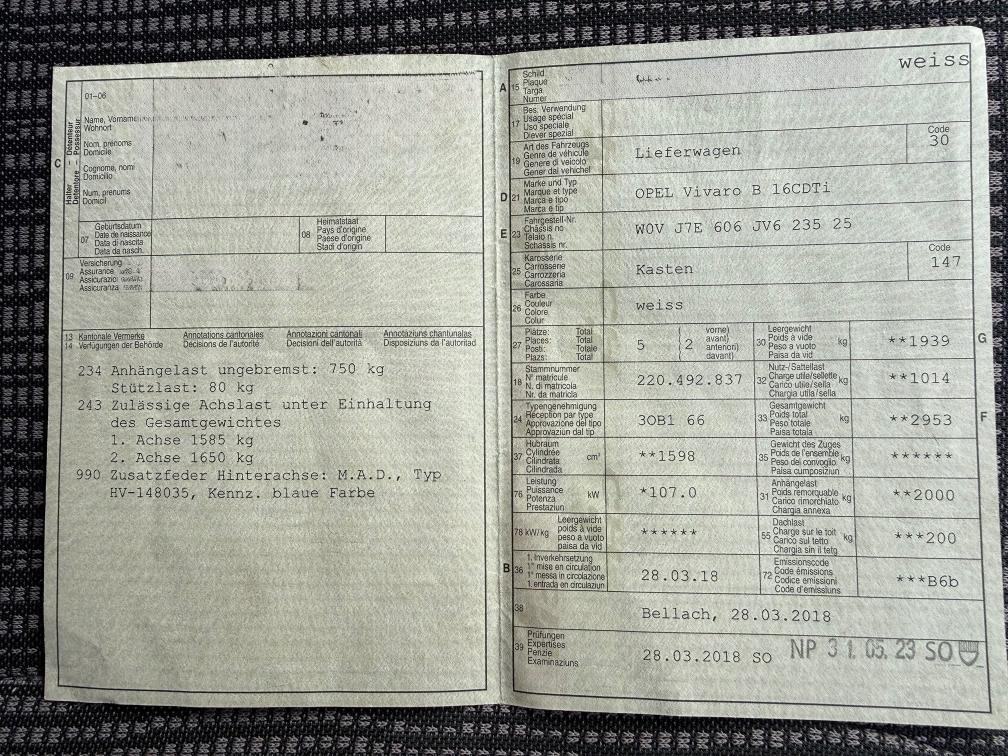 01-06
C
Halter - Détenteur
Detentore - Possessur
Name, Vorname
Wohnort
Nom, prénoms
Domicile
Cognome, nomi
Domicilio
Num, prenums
Domicil
07
Geburtsdatum
Date de naissance
Data di nascita
Data da nasch.
08
Heimatstaat
Pays d'origine
Paese d'origine
Stadi d'origin
09
Versicherung
Assurance
Assicurazione
Assicuranza
13 Kantonale Vermerke Annotations cantonales Annotazioni cantonali Annotaziuns chantunalas
14 Verfügungen der Behörde Décisions de l'autorité Decisioni dell'autorità Disposiziuns da l'autoritad
234 Anhängelast ungebremst: 750 kg
Stützlast: 80 kg
243 Zulässige Achslast unter Einhaltung
des Gesamtgewichtes
1. Achse 1585 kg
2. Achse 1650 kg
990 Zusatzfeder Hinterachse: M.A.D., Typ
HV-148035, Kennz. blaue Farbe
weiss
A 15
Schild
Plaque
Targa
Numer
17
Bes. Verwendung
Usage spécial
Uso speciale
Diever spezial
19
Art des Fahrzeugs
Genre de véhicule
Genere di veicolo
Gener dal vehichel
Lieferwagen
Code
30
D 21
Marke und Typ
Marque et type
Marca e tipo
Marca e tip
OPEL Vivaro B 16CDTi
E 23
Fahrgestell-Nr.
Châssis no
Telaio n.
Schassis nr.
W0V J7E 606 JV6 235 25
25
Karosserie
Carrosserie
Carrozzeria
Carossaria
Kasten
Code
147
26
Farbe
Couleur
Colore
Colur
weiss
27
Plätze: Total
Places: Total
Posti: Totale
Plazs: Total
5 (2
vorne)
avant)
anteriori)
davant)
30
Leergewicht
Poids à vide
Peso a vuoto
Paisa da vid
kg
**1939
G
18
Stammnummer
N° matricule
N. di matricola
Nr. da matricla
220.492.837
32
Nutz-/Sattellast
Charge utile/sellette
Carico utile/sella
Chargia utila/sella
kg
**1014
24
Typengenehmigung
Réception par type
Approvazione del tipo
Approvaziun dal tip
3OB1 66
33
Gesamtgewicht
Poids total
Peso totale
Paisa totala
kg
**2953
F
37
Hubraum
Cylindrée
Cilindrata
Cilindrada
cm³
**1598
35
Gewicht des Zuges
Poids de l'ensemble
Peso del convoglio
Paisa cumposiziun
kg
******
76
Leistung
Puissance
Potenza
Prestaziun
kW
*107.0
31
Anhängelast
Poids remorquable
Carico rimorchiato
Chargia annexa
kg
**2000
78 kW/kg
Leergewicht
poids à vide
peso a vuoto
paisa da vid
******
55
Dachlast
Charge sur le toit
Carico sul tetto
Chargia sin il tetg
kg
***200
B 36
1. Inverkehrsetzung
1re mise en circulation
1a messa in circolazione
1. entrada en circulaziun
28.03.18
72
Emissionscode
Code émissions
Codice emissioni
Code d'emissiuns
***B6b
38
Bellach, 28.03.2018
39
Prüfungen
Expertises
Perizie
Examinaziuns
28.03.2018 SO
NP 31.05.23 SO